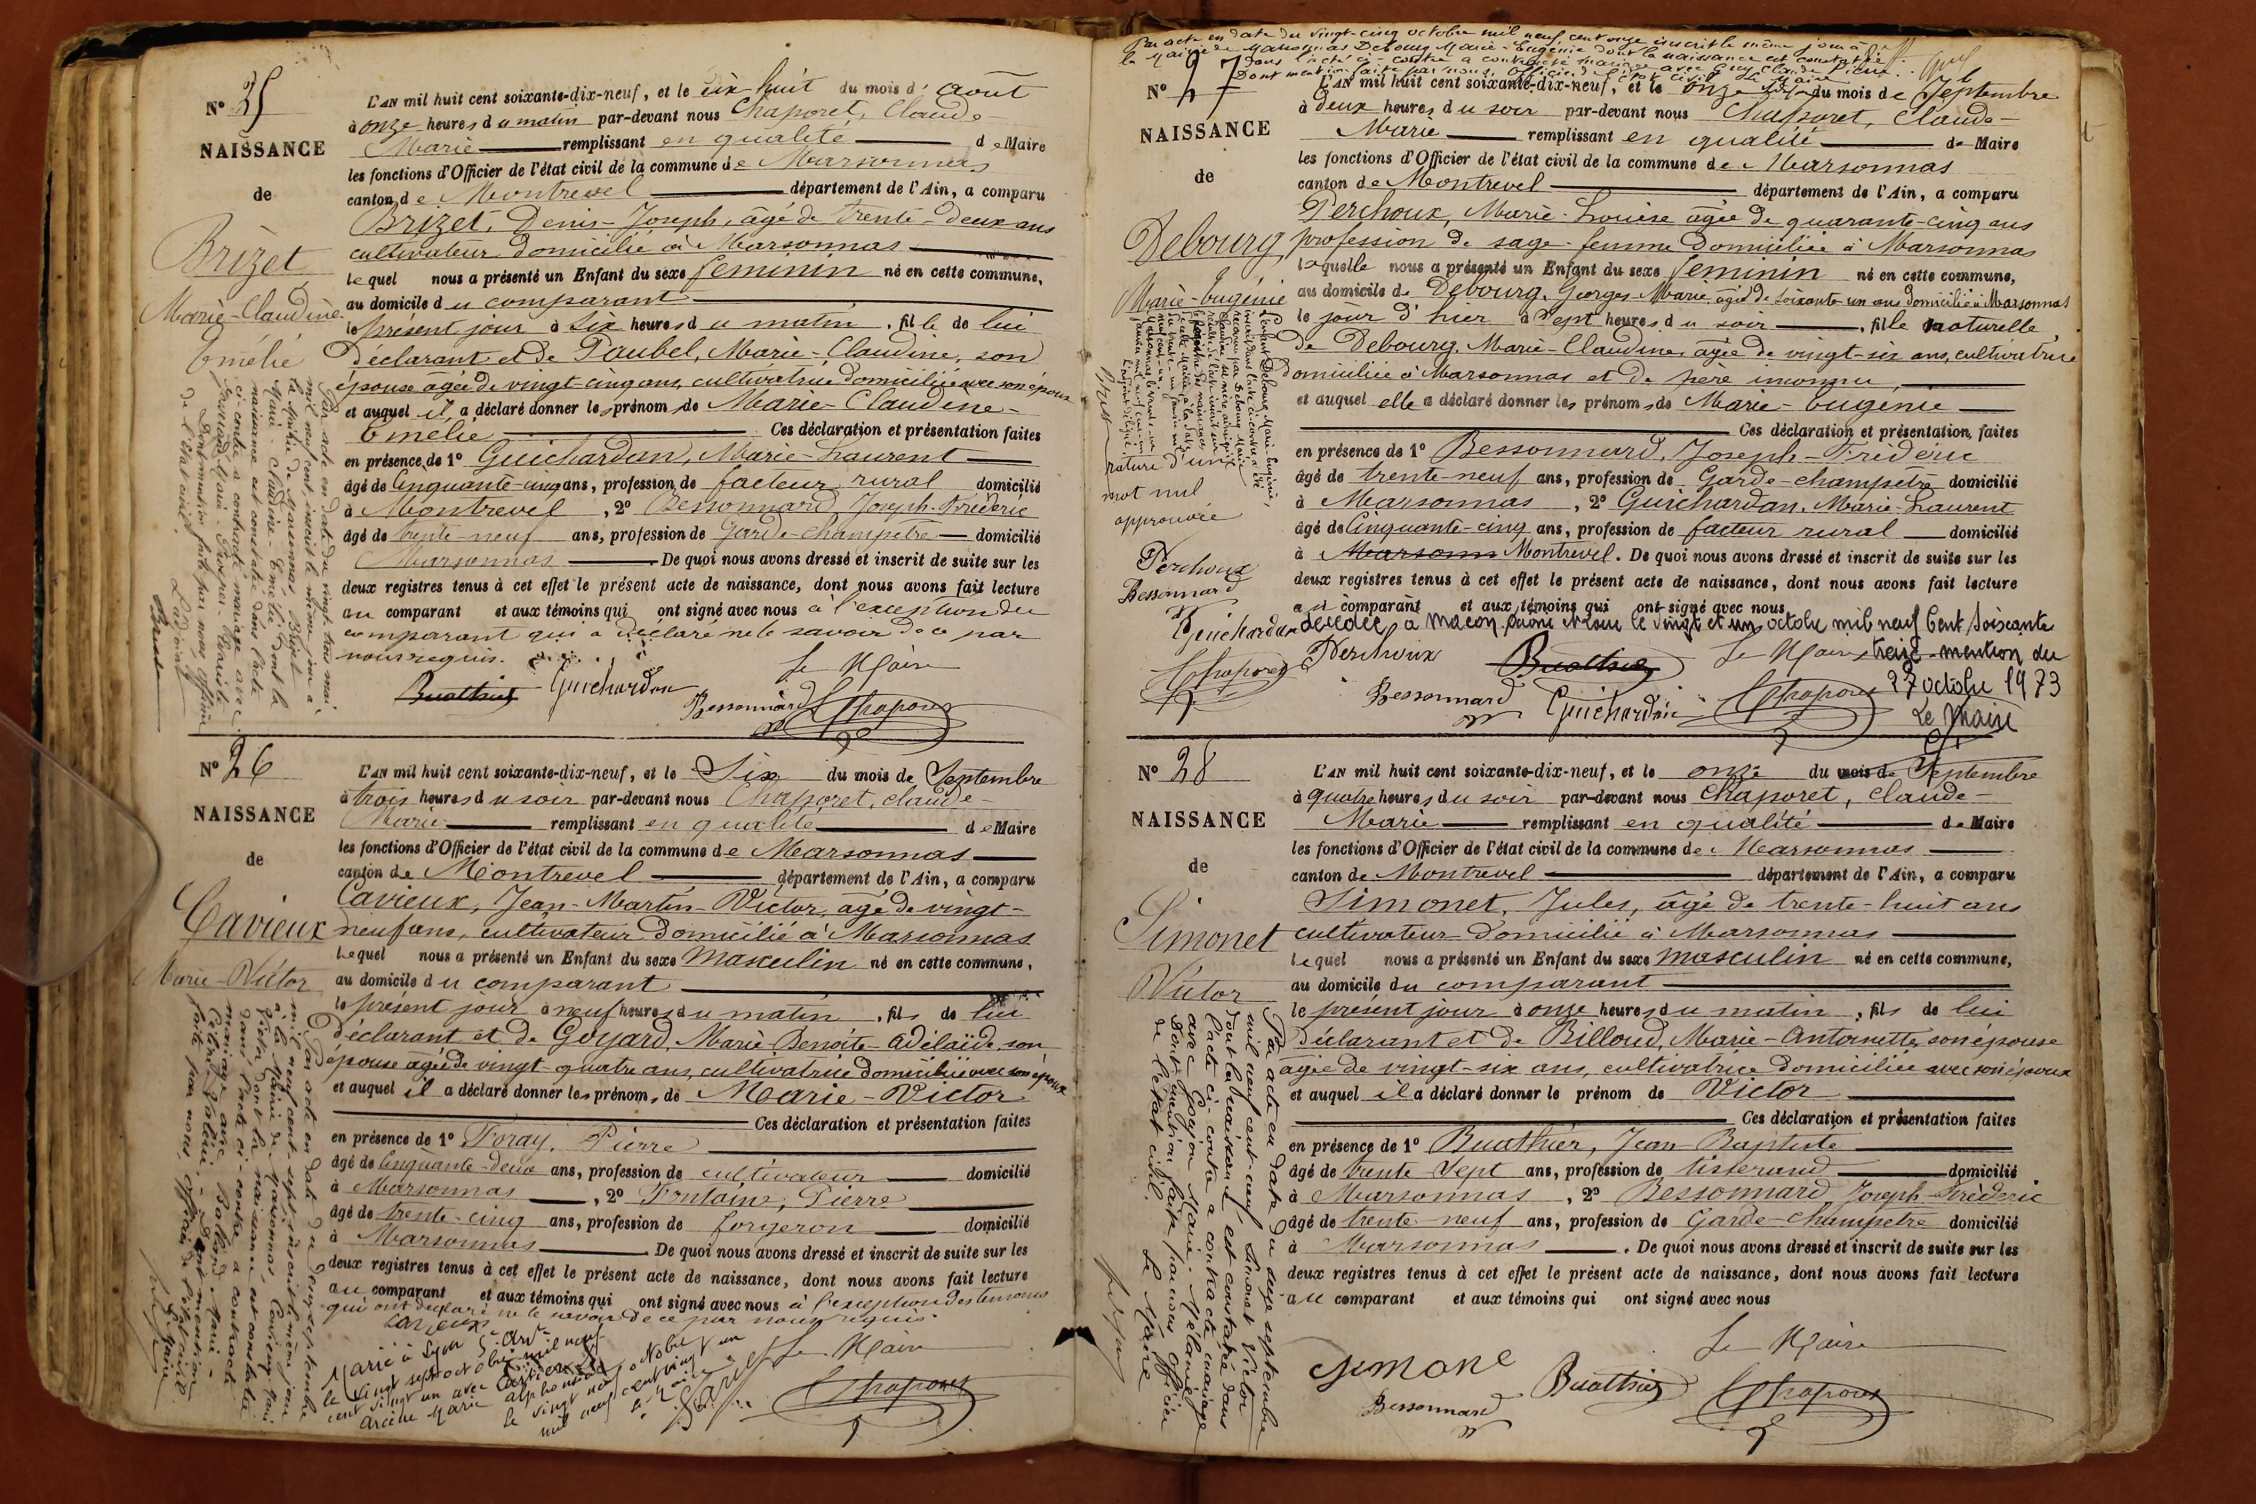 N° 25
NAISSANCE
de
Brizet
Marie-Claudine
Emélie
L'AN mil huit cent soixante-dix-neuf, et le dix huit du mois d'août
à onze heures du matin par-devant nous Chaporet, Claude
Marie remplissant en qualité de Maire
les fonctions d'Officier de l'état civil de la commune de Marsonnas
canton de Montrevel département de l'Ain, a comparu
Brizet, Denis-Joseph, âgé de trente-deux ans
cultivateur domicilié à Marsonnas
lequel nous a présenté un Enfant du sexe féminin né en cette commune,
au domicile du comparant
le présent jour à six heures du matin, fille de lui
déclarant et de Paubel, Marie-Claudine, son
épouse âgée de vingt-cinq ans, cultivatrice domiciliée avec son époux
et auquel il a déclaré donner les prénoms de Marie-Claudine-
Emélie Ces déclaration et présentation faites
en présence de 1° Guichardan, Marie-Laurent
âgé de Cinquante-cinq ans, profession de facteur rural domicilié
à Montrevel, 2° Bessonnard, Joseph-Fréderic
âgé de trente-neuf ans, profession de Garde-champêtre domicilié
Marsonnas De quoi nous avons dressé et inscrit de suite sur les
deux registres tenus à cet effet le présent acte de naissance, dont nous avons fait lecture
au comparant et aux témoins qui ont signé avec nous à l'exception du
comparant qui a déclaré ne le savoir de ce par
nous requis.
Le Maire
Buathier Guichardan
Bessonnard Chaporet
Par acte en date du vingt trois mai
mil neuf cent, inscrit le même jour à
la Mairie de Marsonnas Brizet
Marie-Claudine-Emélie dont la
naissance est constatée dans l'acte
ci-contre a contracté mariage avec
Dont mention faite par nous officier
de l'état civil.
N° 26
NAISSANCE
de
Cavieux
Marie-Victor
L'AN mil huit cent soixante-dix-neuf, et le Six du mois de Septembre
à trois heures du soir par-devant nous Chaporet, Claude-
Marie remplissant en qualité de Maire
les fonctions d'Officier de l'état civil de la commune de Marsonnas
canton de Montrevel département de l'Ain, a comparu
Cavieux, Jean-Martin-Victor, âgé de vingt-
neuf ans, cultivateur domicilié à Marsonnas
lequel nous a présenté un Enfant du sexe masculin né en cette commune,
au domicile du comparant
le présent jour à neuf heures du matin, fils de lui
déclarant et de Goyard, Marie Benoite-Adélaïde, son
épouse âgée de vingt-quatre ans, cultivatrice domiciliée avec son époux
et auquel il a déclaré donner les prénoms de Marie-Victor
Ces déclaration et présentation faites
en présence de 1° Foray, Pierre
âgé de Cinquante-deux ans, profession de cultivateur domicilié
à Marsonnas, 2° Fontaine, Pierre
âgé de trente-cinq ans, profession de forgeron domicilié
à Marsonnas De quoi nous avons dressé et inscrit de suite sur les
deux registres tenus à cet effet le présent acte de naissance, dont nous avons fait lecture
au comparant et aux témoins qui ont signé avec nous à l'exception des témoins
qui ont déclaré ne le savoir de ce par nous requis.
Cavieux
Le Maire
Chaporet
Par acte en date du douze septembre
mil neuf cent sept inscrit le même jour
à la Mairie de Marsonnas Cavieux Marie
Victor dont la naissance est constatée
dans l'acte ci-contre a contracté
mariage avec
Dont mention
faite par nous, officier de l'état civil
Le Maire
Marié à Lyon 5e Ardt
le vingt sept octobre mil neuf
cent vingt un avec
le vingt neuf octobre
mil neuf cent vingt un
Par acte en date du vingt-cinq octobre mil neuf cent onze inscrit le même jour à
la Mairie de Marsonnas Debourg Marie-Eugénie dont la naissance est constatée
dans l'acte ci-contre a contracté mariage avec
Dont mention faite par nous, officier de l'état civil Le Maire
N° 27
NAISSANCE
de
Debourg
Marie-Eugénie
L'AN mil huit cent soixante-dix-neuf, et le onze du mois de Septembre
à deux heures du soir par-devant nous Chaporet, Claude-
Marie remplissant en qualité de Maire
les fonctions d'Officier de l'état civil de la commune de Marsonnas
canton de Montrevel département de l'Ain, a comparu
Perchoux, Marie-Louise âgée de quarante-cinq ans
profession de sage-femme domiciliée à Marsonnas
laquelle nous a présenté un Enfant du sexe féminin né en cette commune,
au domicile de Debourg, Georges-Marie âgé de soixante-un ans domicilié à Marsonnas
le jour d'hier à sept heures du soir, fille naturelle
de Debourg, Marie-Claudine, âgée de vingt-six ans, cultivatrice
domiciliée à Marsonnas et de père inconnu,
et auquel elle a déclaré donner les prénoms de Marie-Eugénie
Ces déclaration et présentation faites
en présence de 1° Bessonnard, Joseph-Fréderic
âgé de trente-neuf ans, profession de Garde-champêtre domicilié
à Marsonnas, 2° Guichardan, Marie-Laurent
âgé de Cinquante-cinq ans, profession de facteur rural domicilié
à Marsonn Montrevel. De quoi nous avons dressé et inscrit de suite sur les
deux registres tenus à cet effet le présent acte de naissance, dont nous avons fait lecture
au comparant et aux témoins qui ont signé avec nous
décédée à Macon Saône et Loire le vingt et un octobre mil neuf Cent Soixante
treize - mention du
27 octobre 1973
Le Maire
Perchoux Buathier Le Maire
Bessonnard Guichardan Chaporet
rature d'un
mot nul
approuvée
Perchoux
Bessonnard
Guichardan
Chaporet
N° 28
NAISSANCE
de
Simonet
Victor
L'AN mil huit cent soixante-dix-neuf, et le onze du mois de Septembre
à quatre heures du soir par-devant nous Chaporet, Claude-
Marie remplissant en qualité de Maire
les fonctions d'Officier de l'état civil de la commune de Marsonnas
canton de Montrevel département de l'Ain, a comparu
Simonet, Jules, âgé de trente-huit ans
cultivateur domicilié à Marsonnas
lequel nous a présenté un Enfant du sexe masculin né en cette commune,
au domicile du comparant
le présent jour à onze heures du matin, fils de lui
déclarant et de Billoud, Marie-Antoinette, son épouse
âgée de vingt-six ans, cultivatrice domiciliée avec son époux
et auquel il a déclaré donner le prénom de Victor
Ces déclaration et présentation faites
en présence de 1° Buathier, Jean-Baptiste
âgé de trente sept ans, profession de tisserand domicilié
à Marsonnas, 2° Bessonnard, Joseph-Fréderic
âgé de trente neuf ans, profession de Garde-champêtre domicilié
à Marsonnas. De quoi nous avons dressé et inscrit de suite sur les
deux registres tenus à cet effet le présent acte de naissance, dont nous avons fait lecture
au comparant et aux témoins qui ont signé avec nous
Le Maire
Simone
Bessonnard Buathier Chaporet
Par acte en date du dix septembre
mil neuf cent-neuf, Simonet Victor
dont la naissance est constatée dans
l'acte ci-contre a contracté mariage
avec Goyon Marie-Mélanie
Dont mention faite par nous officier
de l'état civil. Le Maire